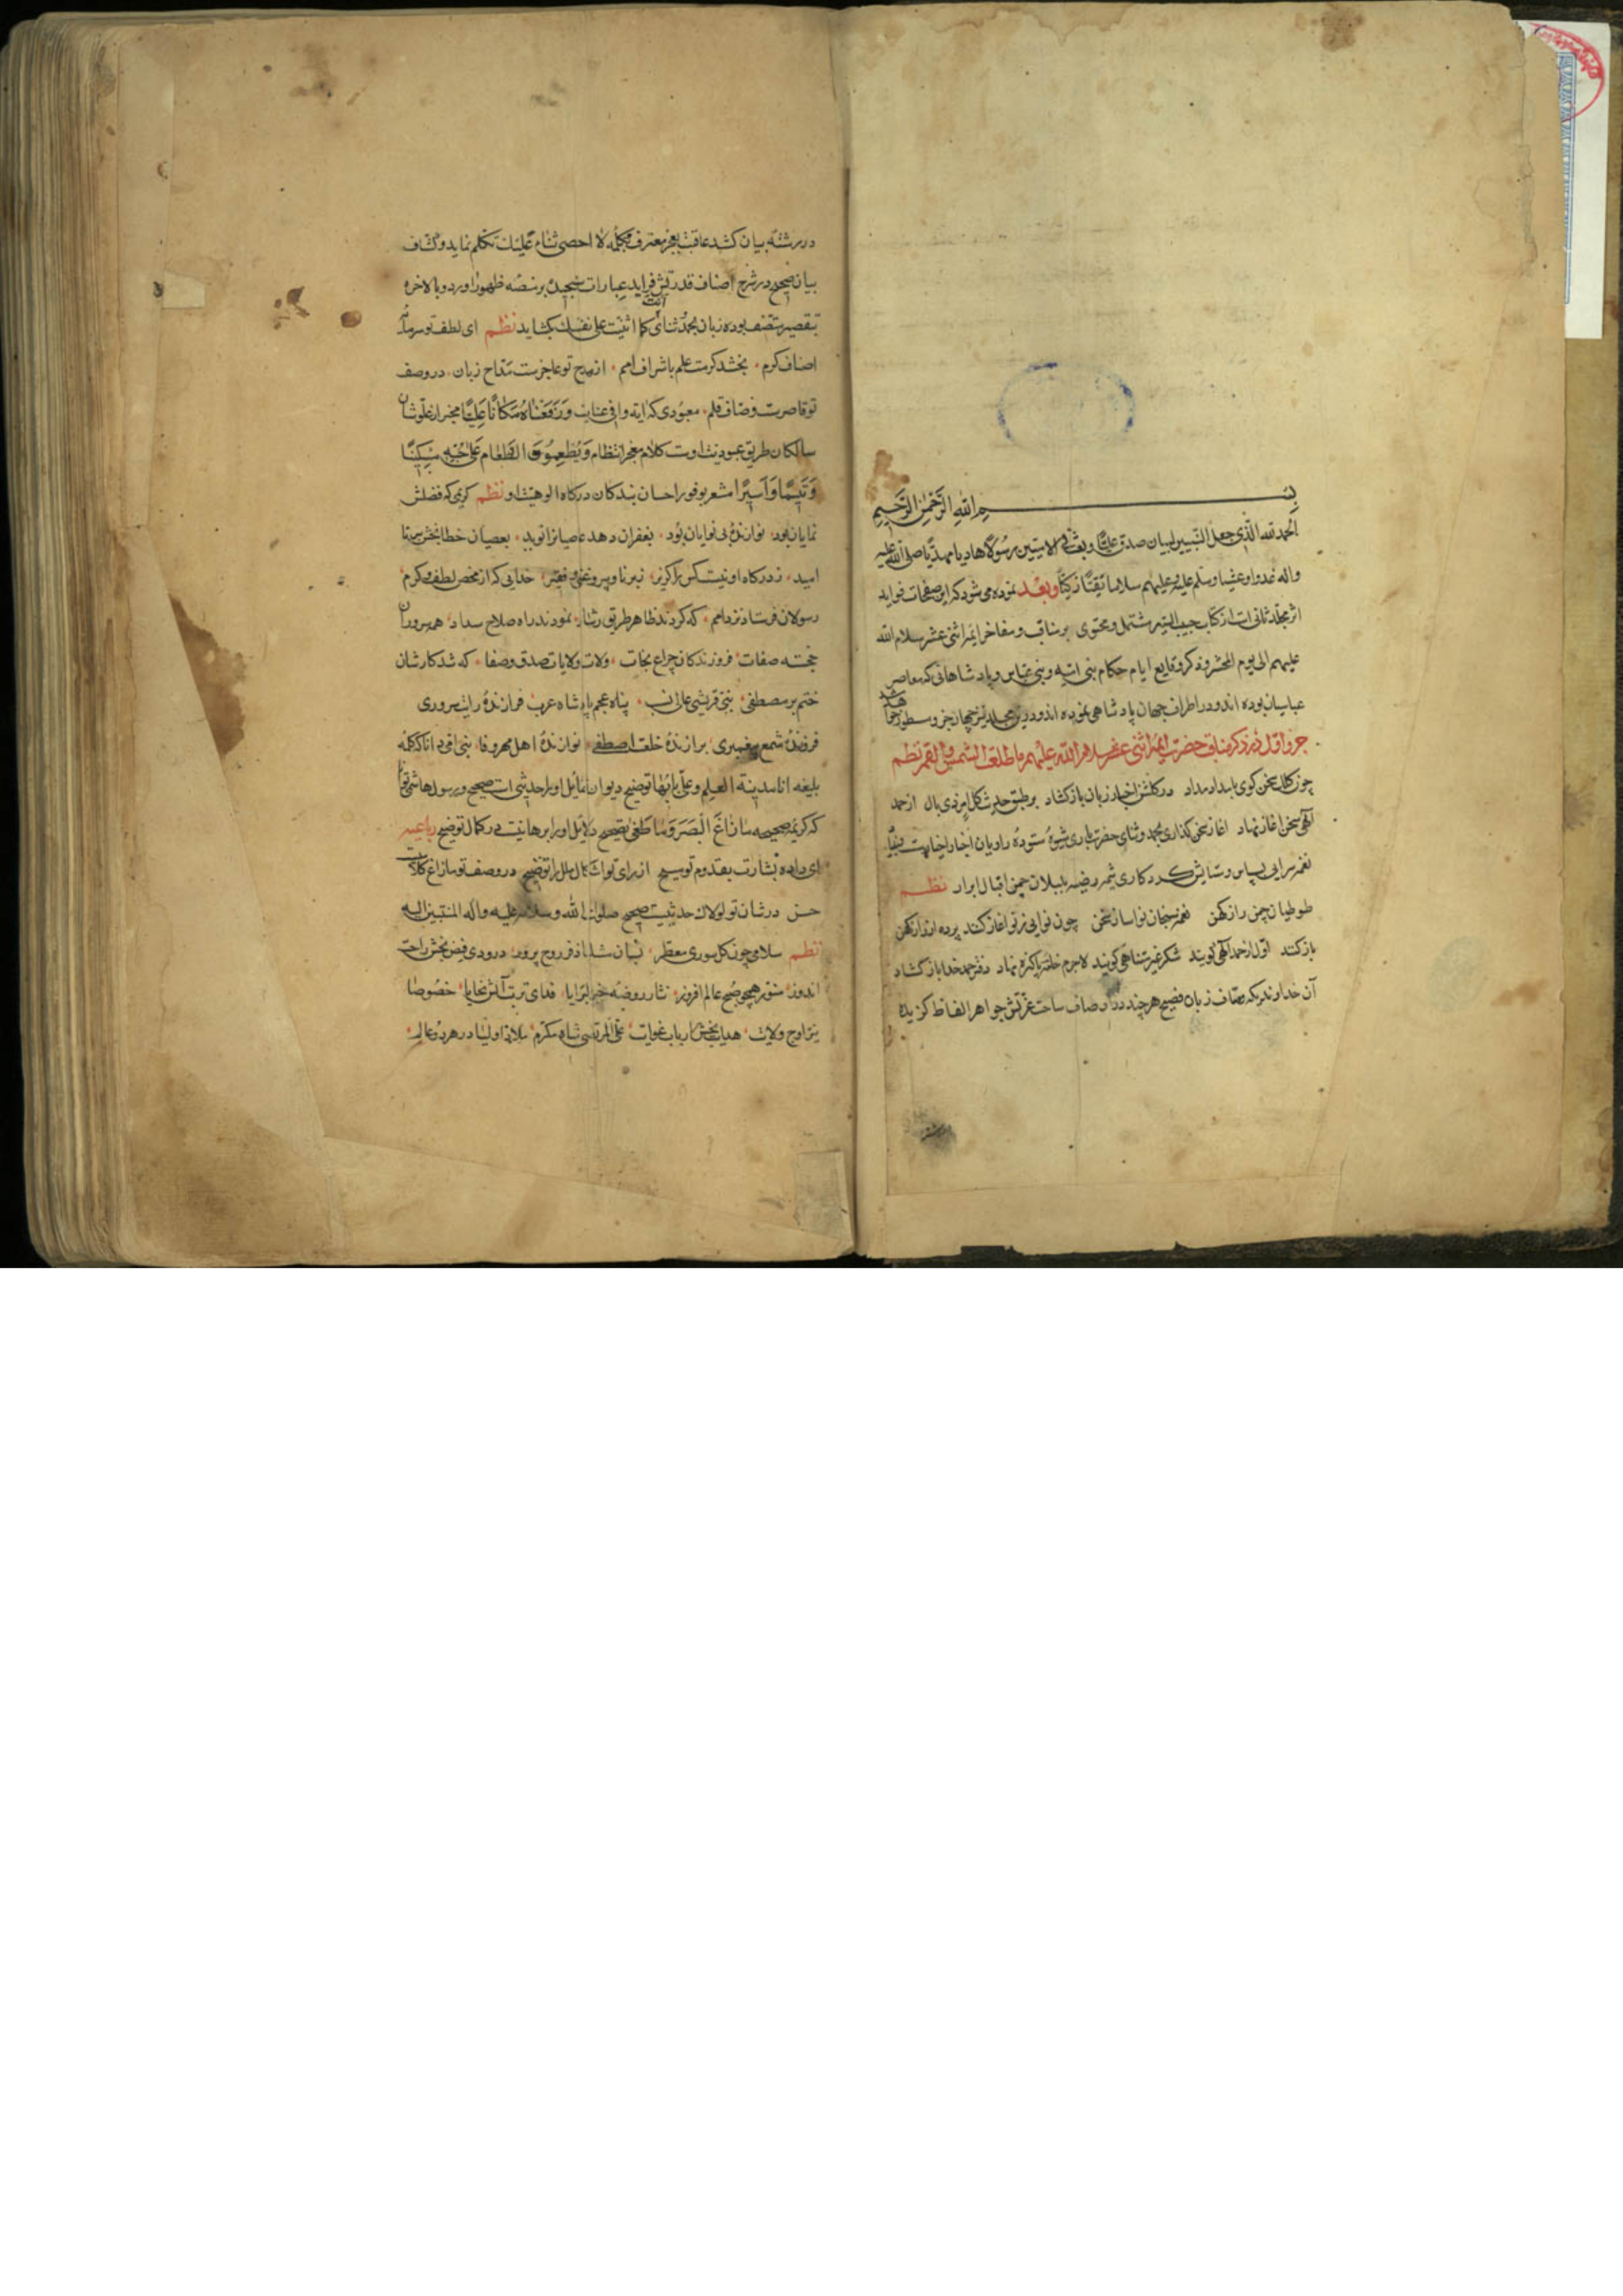 بسم الله الرحمن الرحیم
الحمد لله الذی جعل النبیین لسان صدق علیا وبعث فی الامیین رسولا هادیا مهدیا صلی الله علیه
واله غدوا وعشیا وسلم علیه وعلیهم سلاما تقیا زکیا وبعد نموده می شود که این صفحات فواید
اثر مجلد ثانی است از کتاب حبیب السیر مشتمل ومحتوی بر مناقب ومفاخر ایمه اثنی عشر سلام الله
علیهم الی یوم المحشر وذکر وقایع ایام حکام بنی امیه وبنی عباس وپادشاهانی که معاصر
عباسیان بوده اند ودر اطراف جهان پادشاهی نموده اند ودرین مجلد نیز چهار جزو مسطور خواهد شد
جزو اول در ذکر مناقب حضرت ایمه اثنی عشر سلام الله علیهم ما طلعت الشمس والقمر نظم
چون کلک سخن کوی بامداد مداد در کلشن اخبار زبان باز کشاد بر طبق حدیث کل امر ذی بال از حمد
الهی سخن اغاز نهاد اغاز سخن کذاری بحمد وثنای حضرت باری شیوه ستوده راویان اخبار اخیارست
نغمه سرایی بسپاس وستایش کردکاری ثمره رضیه بلبلان چمن اقبال ابرار نظم
طوطیان چمن راز کهن نغمه سنجان نواساز سخن چون نوایی ز نو اغاز کنند پرده از راز کهن
باز کنند اول از حمد الهی کویند شکر غیر متناهی کویند لاجرم خامه پاکیزه نهاد دفتر حمد خدا باز کشاد
آن خداوندی که وصاف زبان فصیح هر چند در اوصاف ساحت عزتش جواهر الفاظ کزیده
در رشته بیان کشد عاقبت بعجز معترف بکلمه لا احصی ثناء علیک تکلم نماید وکشاف
بیان صحیح در شرح اصناف قدرتش فراید عبارات سنجیده بر منصه ظهور اورد وبالاخره
بتقصیر متصف بوده زبان بحمد وثنای انت کما اثنیت علی نفسک بکشاید نظم ای لطف تو سرمایه
اصناف کرم بخشد کرمت علم باشراف امم از مدح تو عاجزست مداح زبان در وصف
تو قاصرست وصاف قلم معبودی که ایه وافی عنایت ورفعناه مکانا علیا مخبر از علو شان
سالکان طریق عبودیت اوست کلام معجز انتظام ویطعمون الطعام علی حبه مسکینا
ویتیما واسیرا مشعر بوفور احسان بندکان درکاه الوهیت او نظم کریمی که فضلش
نمایان بود نوازنده بی نوایان بود بغفران دهد عاصیانرا نوید بعصیان خطابخش
امید ز درکاه او نیست کس را کزیر ز برنا وپیر وغنی وفقیر خدایی که از محض لطف وکرم
رسولان فرستاد نزد امم که کردند ظاهر طریق رشاد نمودند راه صلاح سداد همه سروران
خجسته صفات فروزندکان چراغ نجات ولات ولایات صدق وصفا که شد کارشان
ختم بر مصطفی نبی قریشی عالی نسب پناه عجم پادشاه عرب فرازنده رایت سروری
فروزنده شمع پیغمبری برازنده خلعت اصطفی نوازنده اهل مهر ووفا نبی امی دانا که کلمه
بلیغه انا مدینة العلم وعلی بابها توضیح دیوان شمایل اورا حدیثی است صحیح ورسول هاشمی توانا
که کریمه صحیحه ما زاغ البصر وما طغی تصحیح دلایل اورا برهانیست در کمال توضیح رباعیه
ای داده بشارت بقدوم تو مسیح از رای تو اشکال ملل را توضیح در وصف تو ما زاغ کلامیست
حسن در شان تو لولاک حدیثیست صحیح صلوات الله وسلامه علیه واله المنتسبین الیه
نظم سلامی چون کل سوری معطر بسان روح پرور درودی فیض بخش راحت
اندوز منور همچو صبح عالم افروز نثار روضه خیر البرایا فدای تربت آلش خصوصا
اوج ولایت هدایت بخش ارباب غوایت علی المرتضی شاه مکرم ملاذ اولیا در هر دو عالم